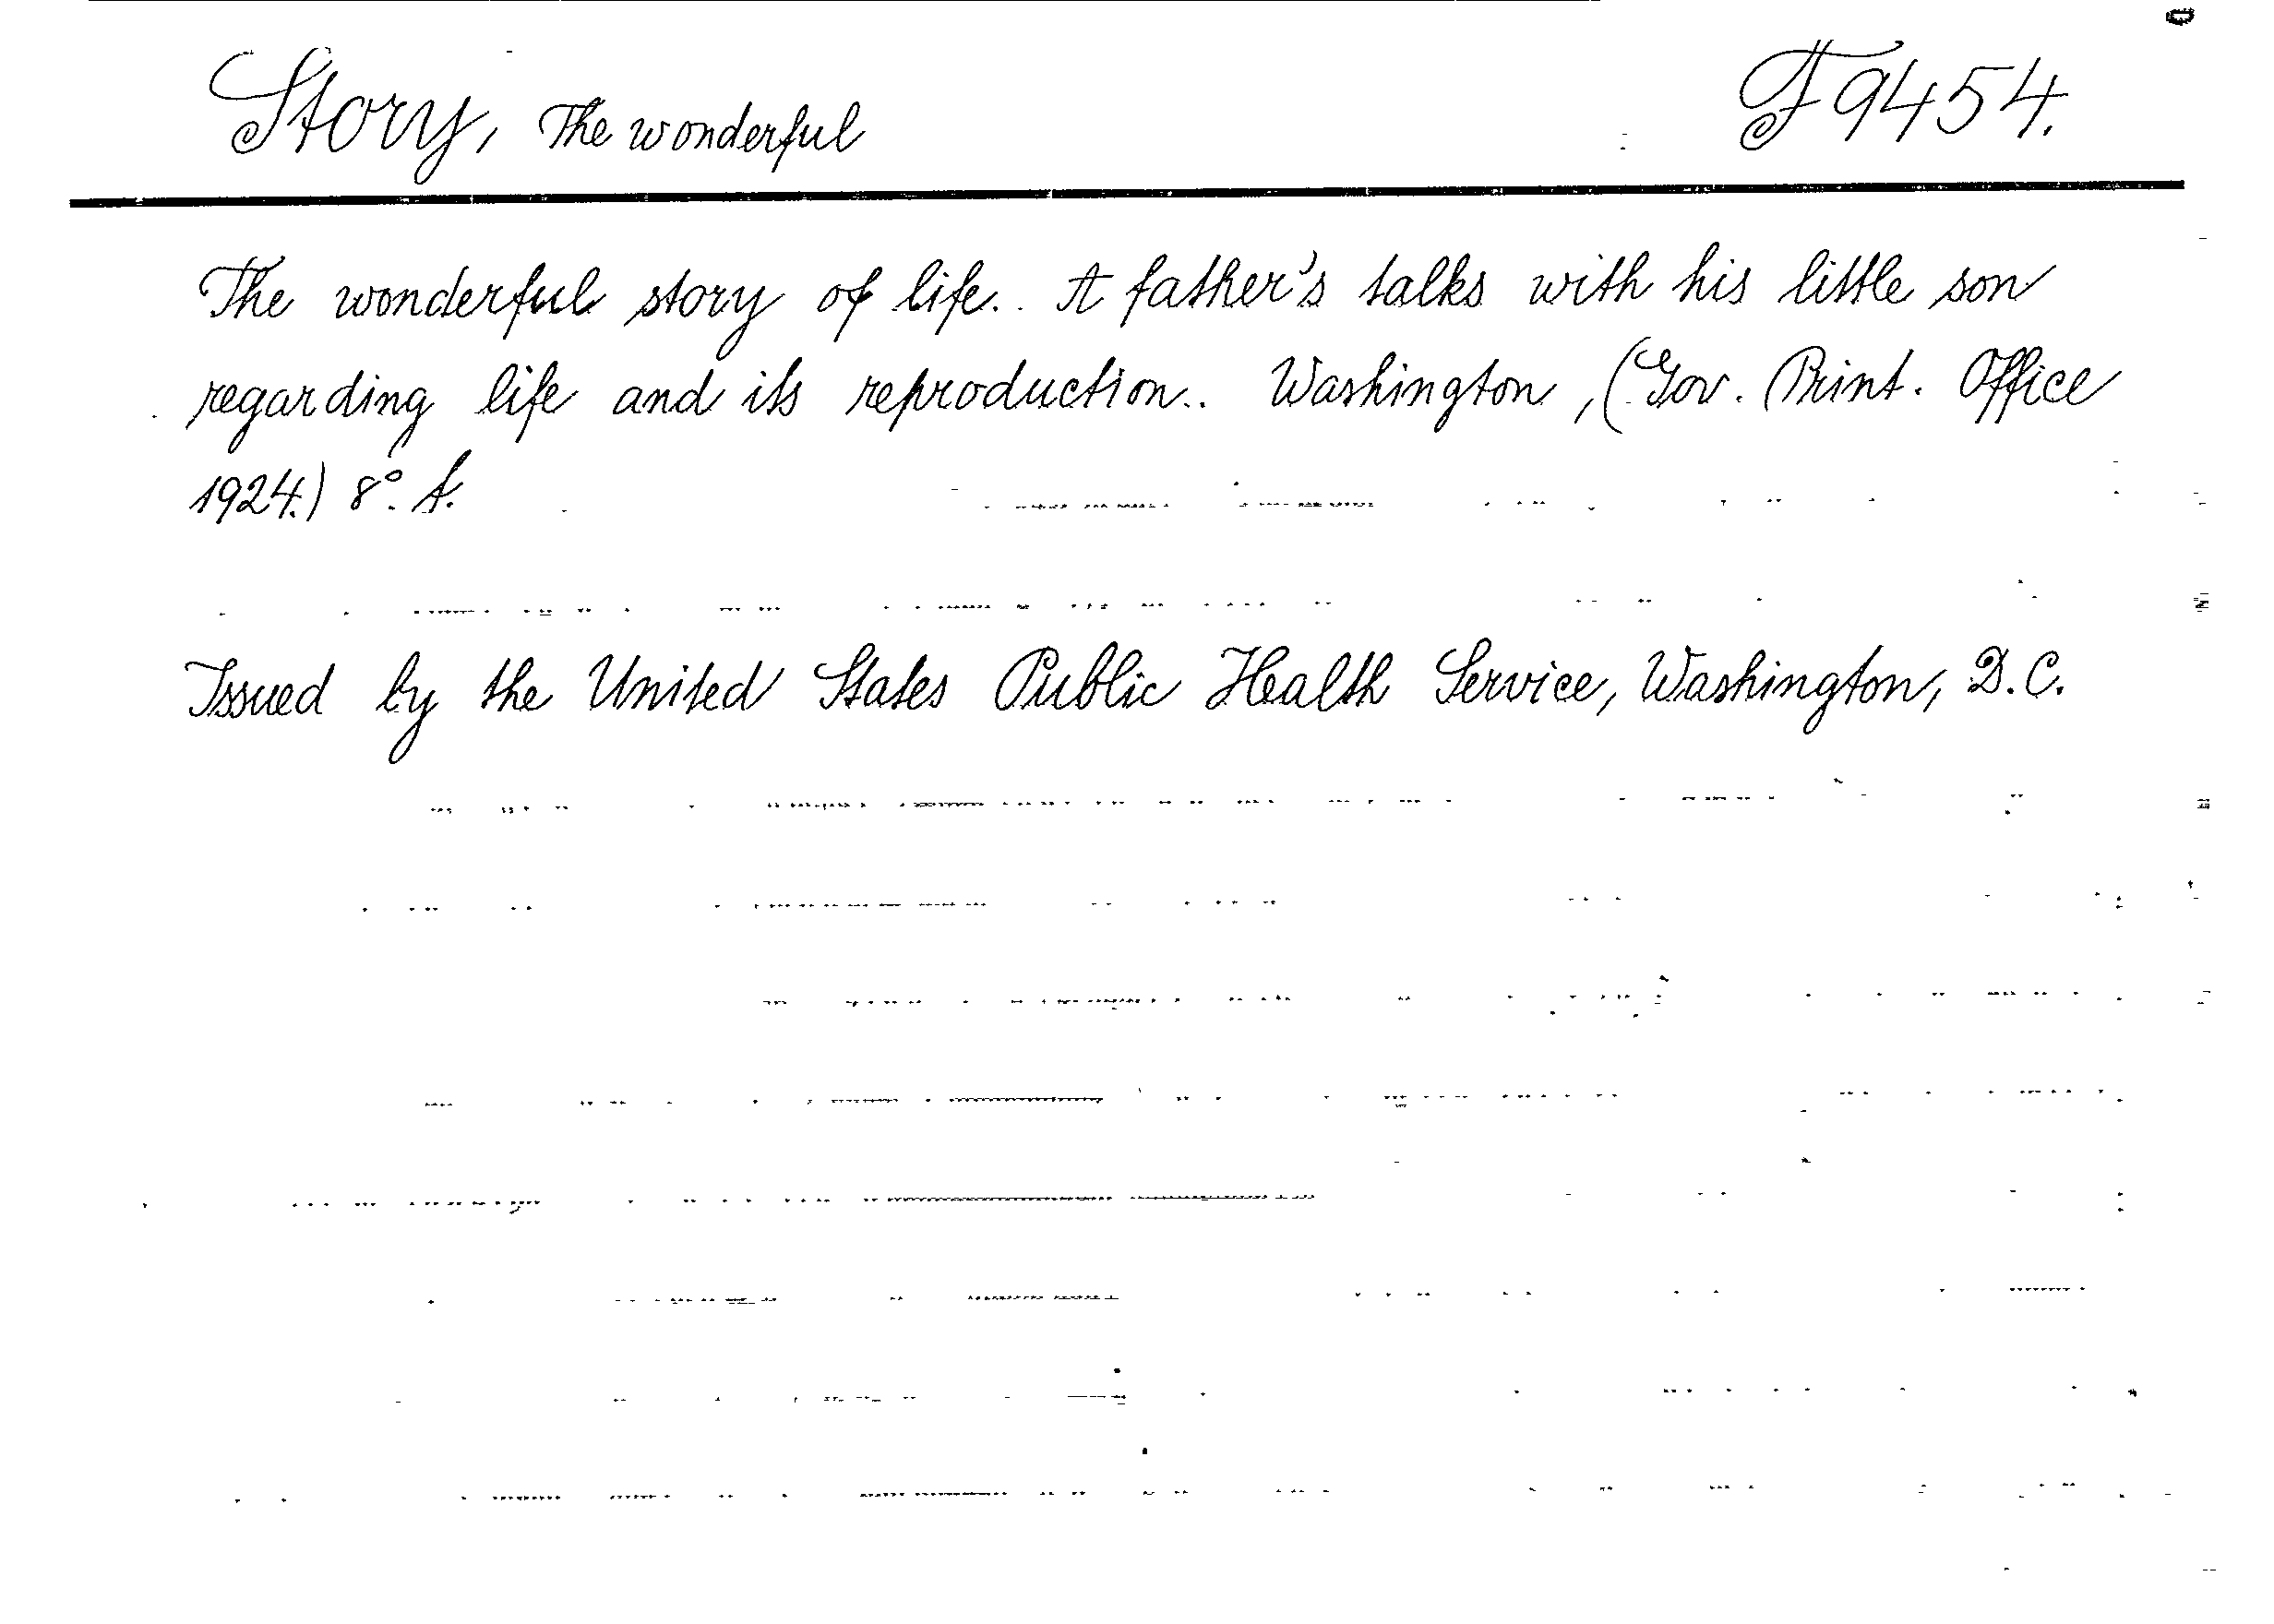 Story, The wonderful F 9454.
The wonderful story of life. A father's talks with his little son
regarding life and its reproduction. Washington, (Gov. Print. Office
1924.) 8°.
Issued by the United States Public Health Service, Washington, D.C.